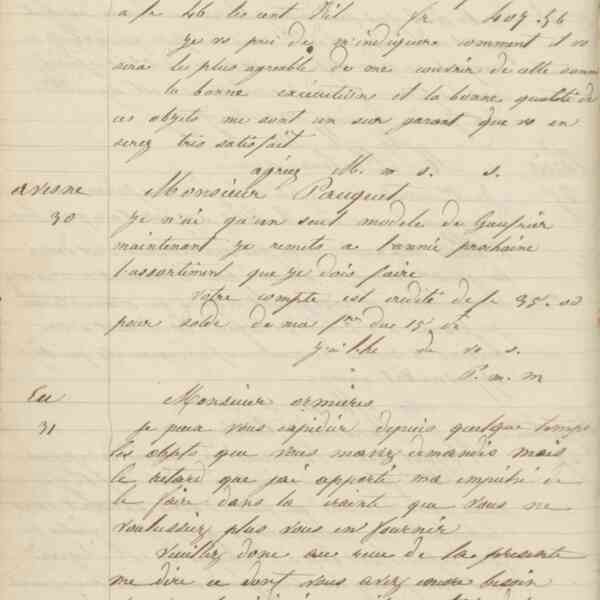 a fr 46 les cent Kil fr 407.56
Je vs prie de m'indiquer comment il vs
sera le plus agreable de me couvrir de cette somme
la bonne exécution et la bonne qualité de
ces objets me sont un sur garant que vs en
serez tres satisfait
agréez M. m s. s.
avesne Monsieur Pauquet
30 Je n'ai qu'un seul modele de Gaufrier
maintenant je remets a l'année prochaine
l'assortiment que je dois faire
Votre compte est credité de fr 35.00
pour solde de ma fre due 15 ct
J'ai l'he de vs s.
P. m. m
Eu Monsieur ormieres
31 je peux vous expédier depuis quelque temps
les objets que vous mavez demandés mais
le retard que jai apporté ma empéché de
le faire dans la crainte que vous ne
voulussiez plus vous en fournir
Veuillez donc au recu de la presente
me dire ce dont vous avez encore besoin